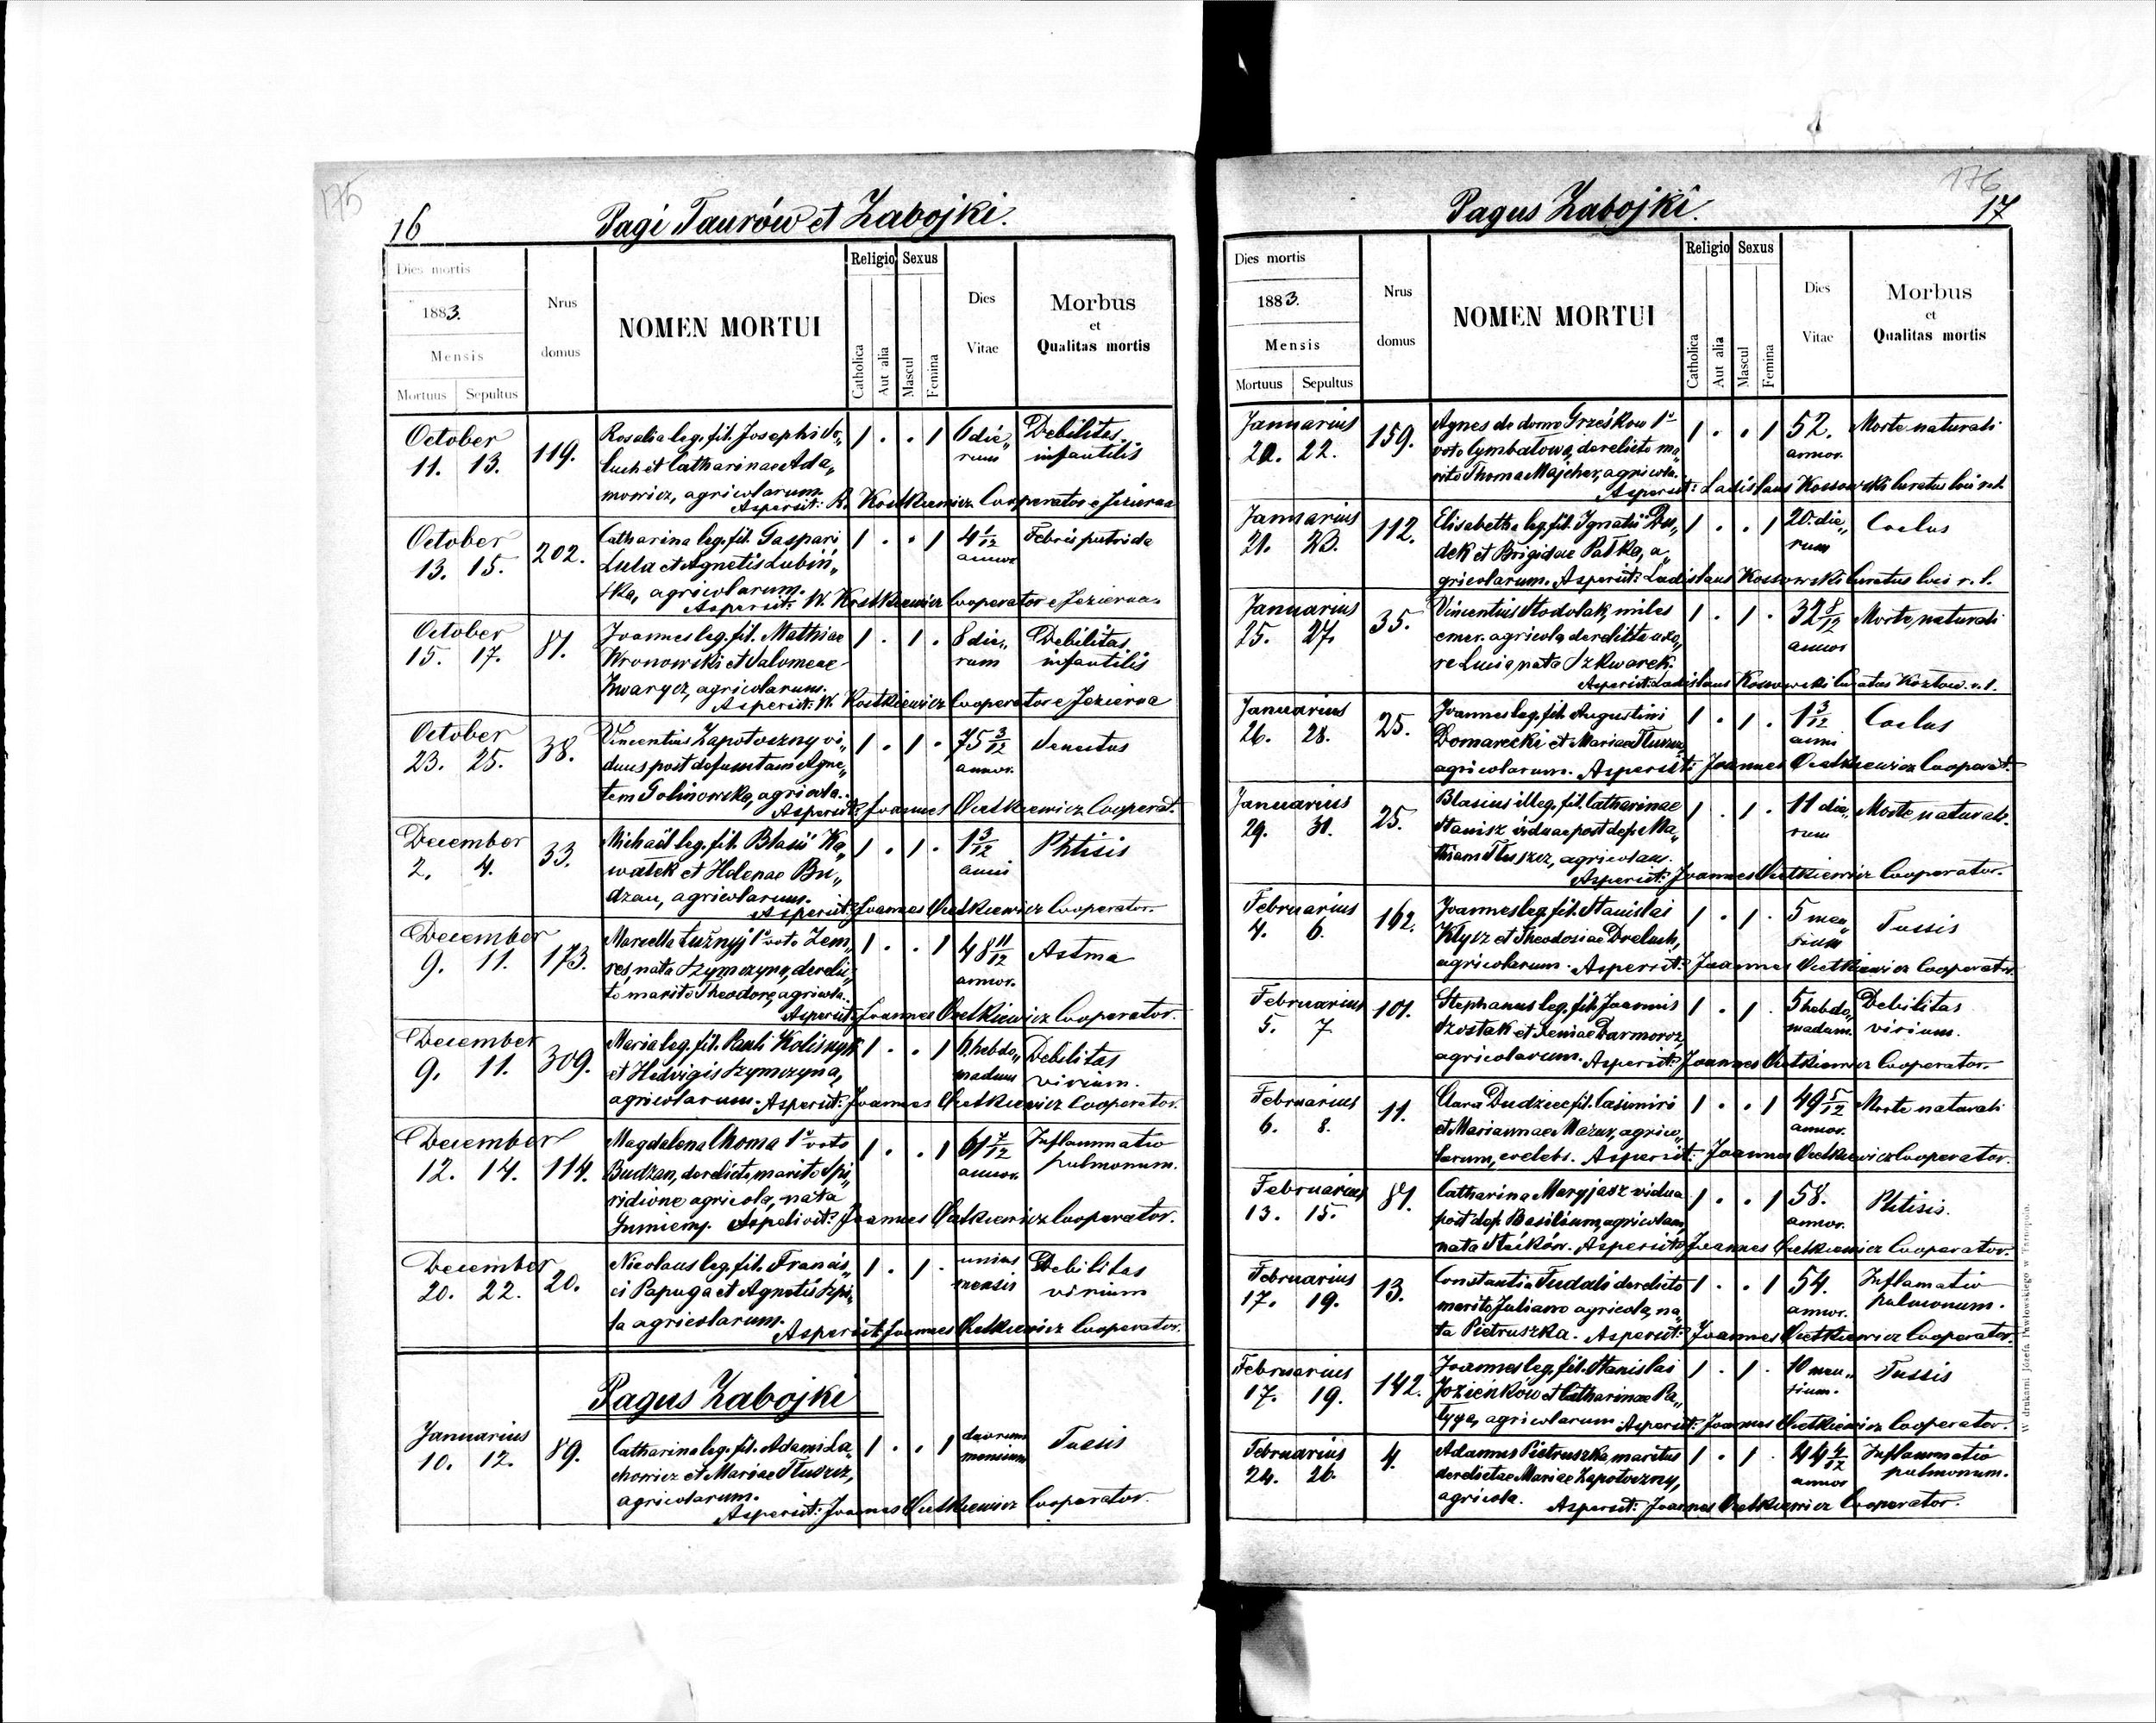 175
16 Pagi Taurów et Zabojki.
Dies mortis
1883.
Mensis
Mortuus Sepultus
Nrus domus
NOMEN MORTUI
Religio Sexus
Catholica Aut alia Mascul Femina
Dies Vitae
Morbus
et
Qualitas mortis
October 119. Rosalia leg. fil. Josephi So„ 1 . . 1 6 die„ Debilitas
11. 13. luch et Catharinae Ada„ rum infantilis
mowicz, agricolarum.
Aspersit: Kostkiewicz Cooperator e Jezierna
October 202. Catharina leg. fil. Gaspari 1 . . 1 4 1/12 Febris putrida
13. 15. Lula et Agnetis Lubiń„ annor
ska, agricolarum.
Aspersit: W. Kostkiewicz Cooperator e Jezierna.
October 81. Joannes leg. fil. Mathiae 1 . 1 . 8 die„ Debilitas
15. 17. Wronowski et Salomeae rum infantilis
Zwarycz, agricolarum.
Aspersit: W. Kostkiewicz Cooperator e Jezierna
October 38. Vincentius Zapotoczny vi„ 1 . 1 . 75 3/12 Senectus
23. 25. duus post defunctam Agne„ annor.
tem Golinowska, agricola.
Aspersit: Joannes Cooperat.
December 33. Michaël leg. fil. Blasii Ka„ 1 . 1 . 1 3/12 Phtisis
2. 4. wałek et Helenae Bu„ anni
dzan, agricolarum.
Aspersit: Joannes Cooperator.
December 173. Marcella Łużnyj 1º voto Zem„ 1 . . 1 48 11/12 Astma
9. 11. res, nata Szymczyna, derelic„ annor.
to marito Theodoro, agricola.
Aspersit: Joannes Cooperator.
December 309. Maria leg. fil. Pauli Kolisnyk 1 . . 1 6. hebdo„ Debilitas
9. 11. et Hedvigis Szymczyna, madum virium.
agricolarum. Aspersit: Joannes Cooperator.
December 114. Magdalena Choma 1º voto 1 . . 1 61 7/12 Inflammatio
12. 14. Budzan, derelicto marito Spi„ annor. pulmonum.
ridione agricola, nata
Joannes Cooperator.
December 20. Nicolaus leg. fil. Francis„ 1 . 1 . unius Debilitas
20. 22. ci Papuga et Agnetis Szpi„ mensis virium
ta agricolarum.
Aspersit: Joannes Cooperator.
Pagus Zabojki
Januarius 89. Catharina leg. fil. Adami La„ 1 . . 1 duorum Tussis
10. 12. chowicz et Mariae Tłuszcz, mensium
agricolarum.
Aspersit: Joannes Cooperator.
176
Pagus Zabojki. 17
Dies mortis
1883.
Mensis
Mortuus Sepultus
Nrus domus
NOMEN MORTUI
Religio Sexus
Catholica Aut alia Mascul Femina
Dies Vitae
Morbus
et
Qualitas mortis
Januarius 159. Agnes de domo Grześkow 1º 1 . . 1 52. Morte naturali
20. 22. voto Cymbałowa, derelicto ma„ annor.
rito Thoma Majcher, agricola.
Aspersit: Ladislaus Kossowski Curatus loci r. l.
Januarius 112. Elisabetha leg. fil. Ignatii Du„ 1 . . 1 20. die„ Coelus
21. 23. dek et Brigidae Pałka, a„ rum
gricolarum. Aspersit: Ladislaus Kossowski Curatus loci r. l.
Januarius 35. Vincentius Stodolak, miles 1 . 1 . 32 8/12 Morte naturali
25. 27. emer. agricola derelicta uxo„ annor
re Lucia, nata Szkwarek.
Aspersit: Ladislaus Kossowski Curatus Kozłow. r. l.
Januarius 25. Joannes leg. fil. Augustini 1 . 1 . 1 3/12 Coelus
26. 28. Domarecki et Mariae Tłuszcz, anni
agricolarum. Aspersit: Joannes Cooperat.
Januarius 25. Blasius illeg. fil. Catharinae 1 . 1 . 11 die„ Morte naturali.
29. 31. Stanisz viduae post def. Ma„ rum
thiam Tłuszcz, agricolam.
Aspersit: Joannes Cooperator.
Februarius 162. Joannes leg. fil. Stanislai 1 . 1 . 5 men„ Tussis
4. 6. Kłycz et Theodosiae Dreluch, sium
agricolarum. Aspersit: Joannes Cooperator.
Februarius 101. Stephanus leg. fil. Joannis 1 . 1 . 5 hebdo„ Debilitas
5. 7 Szostak et Xeniae Darmoroz, madum. virium.
agricolarum. Aspersit: Joannes Cooperator.
Februarius 11. Clara Dudziec fil. Casimiri 1 . . 1 49 5/12 Morte naturali
6. 8. et Mariannae Mazur, agrico„ annor.
larum, coelebs. Aspersit: Joannes Cooperator.
Februarius 81. Catharina Maryjasz vidua 1 . . 1 58. Phtisis.
13. 15. post def. Basilium, agricolam, annor.
nata Stećków. Aspersit: Joannes Cooperator.
Februarius 13. Constantia Fudali derelicto 1 . . 1 54. Inflamatio
17. 19. marito Juliano agricola, na„ annor. pulmonum.
ta Pietruszka. Aspersit: Joannes Cooperator.
Februarius 142. Joannes leg. fil. Stanislai 1 . 1 . 10 men„ Tussis
17. 19. Jozieńkow et Catharinae Pa„ sium.
tyga, agricolarum. Aspersit: Joannes Cooperator.
Februarius 4. Adamus Pietruszka, maritus 1 . 1 . 44 4/12 Inflammatio
24. 26. derelictae Mariae Zapotoczny, annor pulmonum.
agricola. Aspersit: Joannes Cooperator.
W drukarni Józefa Pawłowskiego w Tarnopolu.